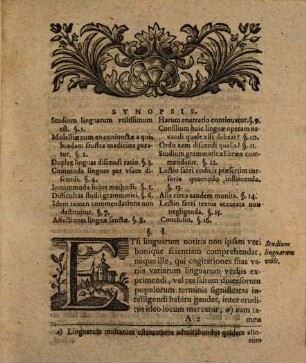 SYNOPSIS.
Studium linguarum utilissimum
est. §. 1.
Molestiæ cum eo coniunctæ a qui-
busdam frustra medicina para-
tur. §. 2.
Duplex linguas discendi ratio. §. 3.
Commoda linguas per usum di-
scendi. §. 4.
Incommoda hujus methodi. §. 5.
Difficultas studii grammatici. §. 6.
Idem tamen commendatione non
destituitur. §. 7.
Affectiones linguæ sanctæ. §. 8.
Harum enarratio continuatur. §. 9.
Consilium huic linguæ operam na-
vandi quale esse debeat? §. 10.
Ordo eam discendi qualis? §. 11.
Studium grammaticæ Ebrææ com-
mendatur. §. 12.
Lectio sacri codicis præsertim cur-
soria quomodo instituenda.
§. 13.
Alia circa eandem monita. §. 14.
Lectio sacri textus accurata non
negligenda. §. 15.
Conclusio. §. 16.
§. 1.
ETsi linguarum notitia non ipsam veri
bonique scientiam comprehendat;
nique ille, qui cogitationes suas va-
riis variarum linguarum verbis ex-
primendi, vel voces istas diversorum
populorum terminis significantes in-
telligendi habitu gaudet, inter erudi-
tos ideo locum mereatur; a) eam ta-
Studium
linguarum
utile.
A 2
men
a) Linguarum multarum ostentatores admirabundos quidem alio-
rum